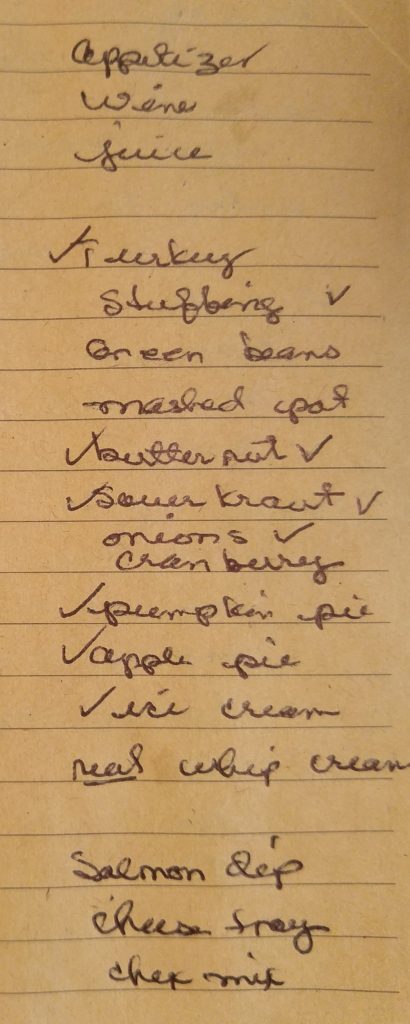 appetizer
wine
juice
✓Turkey
stuffing ✓
Green beans
mashed pot
✓butternut ✓
✓Sauerkraut ✓
onions ✓
cranberry
✓pumpkin pie
✓apple pie
✓ice cream
real whip cream
Salmon dip
cheese tray
chex mix